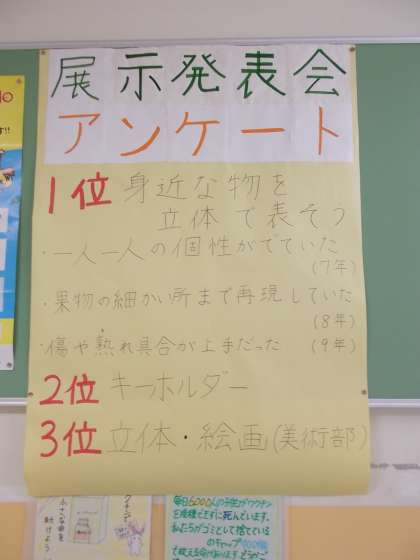 展示発表会
アンケート
1位 身近な物を
立体で表そう
・一人一人の個性がでていた
(7年)
・果物の細かい所まで再現していた
(8年)
・傷や熟れ具合が上手だった (9年)
2位 キーホルダー
3位 立体・絵画(美術部)
毎日6000人の子供がワクチン
を接種できずに死んでいます。
私たちがゴミとして捨てている